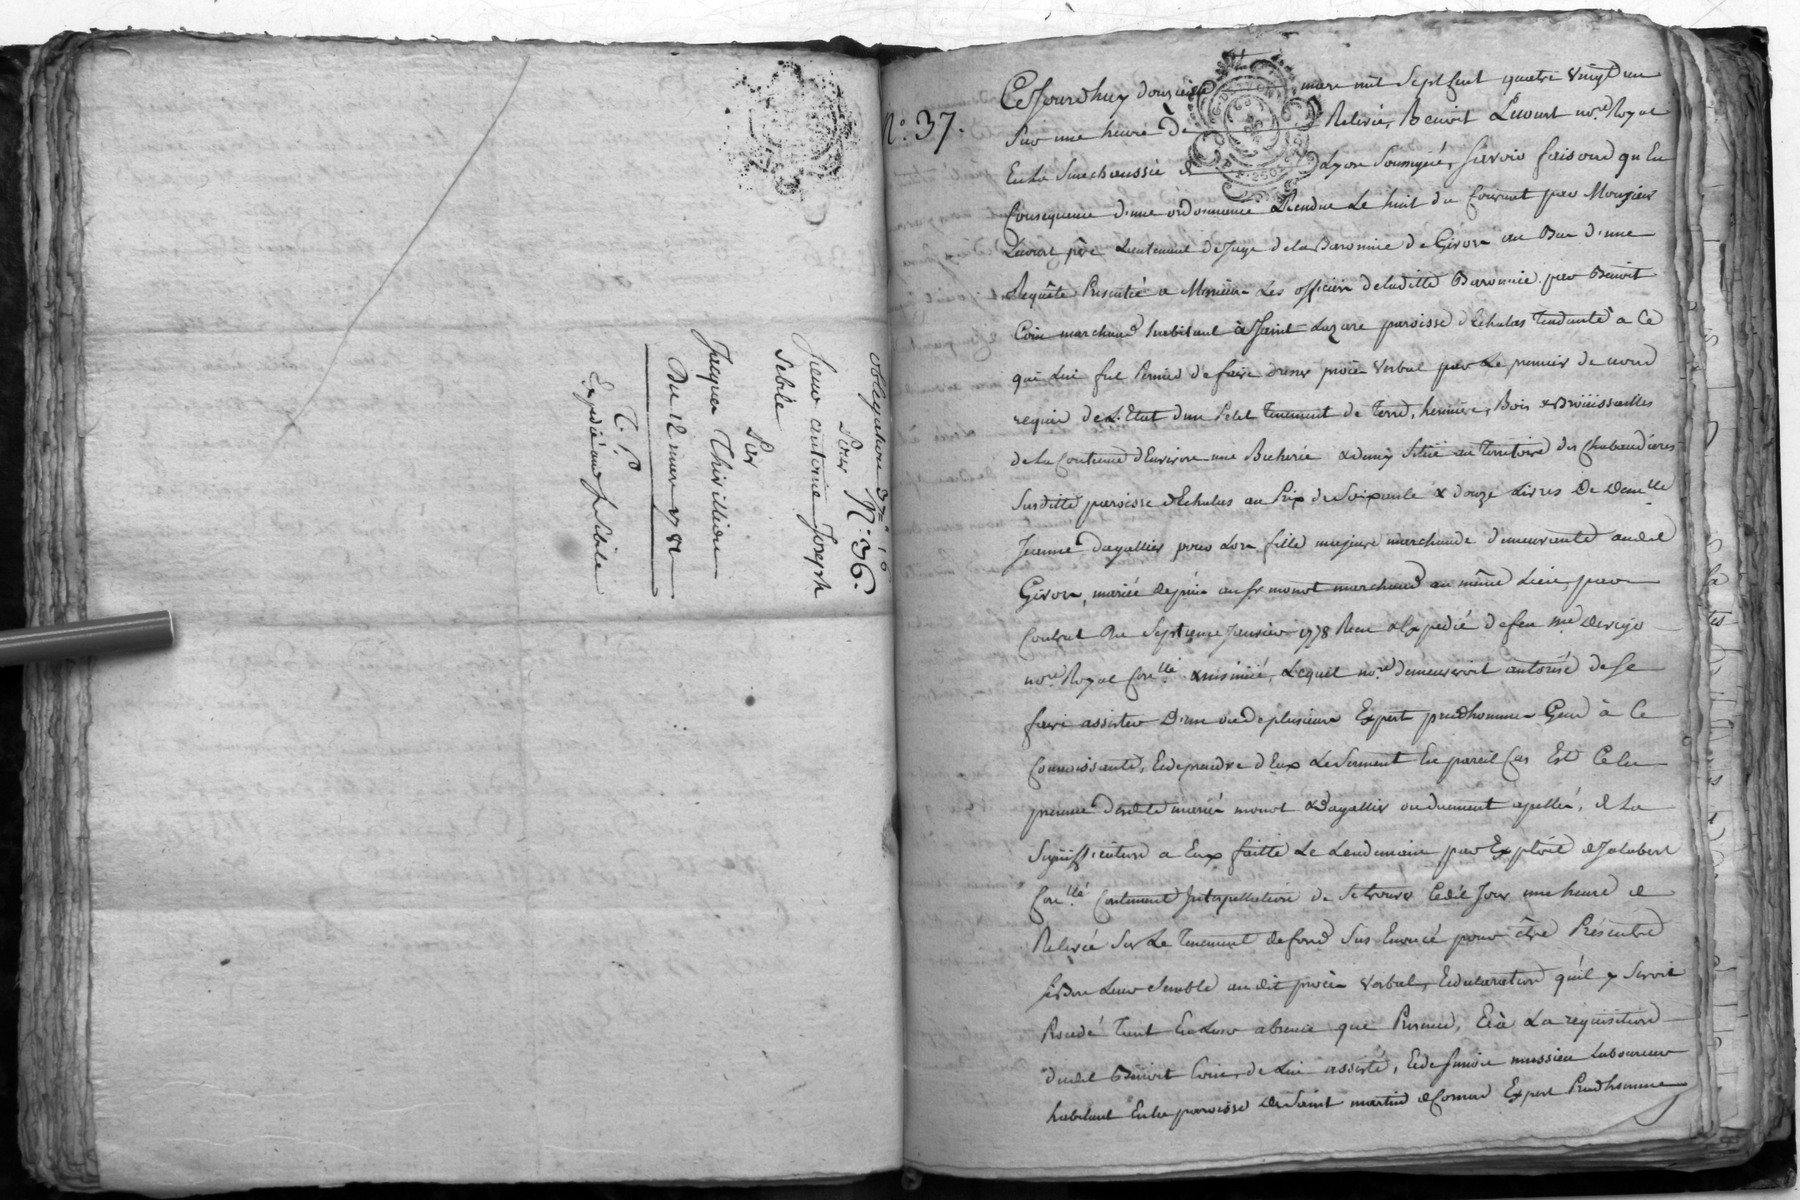 obligation 37#" 16
N.° 36.
Pour
Sieur antoine Joseph
Sebile
Par
Jacques Thivillion
Du 12 mars 1781
Expédié aud. Sr Sibile
N.° 37.
Ce Jourdhuy douzieme mars mil Sept Cent quatre Vingt un
Sur une heure de Relevée, Benoit Lieurt no.re Royal
En La Senechaussée de Lyon Soussigné, Savoir faisons qu En
Consequence d'une ordonnance Rendue Le huit du Courant par Monsieur
père Lieutenant de Juge de la Baronnie de Givors au Bas d'une
Requête Presentée a Messieurs Les officiers de laditte Baronnie par Benoit
Coin marchand habitant à Saint Lazare paroisse d'Echalas Tendante a Ce
qui Lui fut Permis de faire dresser procès Verbal par Le premier de nous
requis de L'Etat d'un Petit Tenement de Terre, hermure, Bois & Broüissailles
de La Contenue d'Environ une Bicherée & demy Situé au Territoire des Chabaudieres
Susditte paroisse d'Echalas au Prix de Soixante & douze Livres De Dem.lle
Jeanne Dagallier pour Lors fille majeure marchande demeurante audit
Givors, mariée depuis au Sr monot marchand au même Lieu, par
Contrat Du Septieme Janvier 1778 Recu & Expedié de feu me
no.re Royal, Lequel no.re demeureroit autorisé de Se
faire assister D'un ou de plusieurs Expert prudhommes Gens à Ce
Connoissants, Et de prendre d'Eux Le Serment En pareil Cas Et Ce En
presence desdits mariés monot & Dagallier ou duement apellés, & La
Signiffication a Eux faitte Le Lendemain par Exploit de Jalabert
Contenant Interpellation de Se trouver Cedit Jour une heure de
Relevée Sur Le Tenement de fond Sus Enoncé pour être Présents
Si Bon Leur Semble audit procès Verbal, Et declaration qu'il y Seroit
Procédé Tant En Leur absence que Presence, Et à La réquisition
dudit Benoit Coin, de Lui assisté, Et de Laboureur
habitant En La paroisse de Saint martin de Cornas Expert Prudhomme